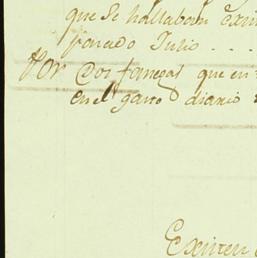 que se hallaban exin
ponedo Julio . . . .
Por Dos fanegas que en
en el gasto diario
Exinten